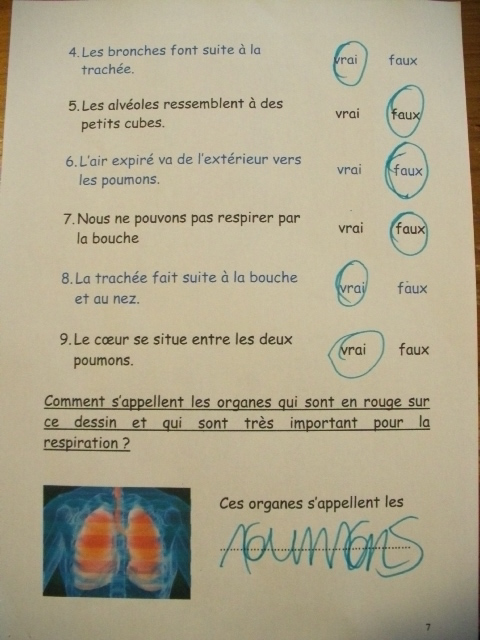 4. Les bronches font suite à la
trachée.
vrai faux
5. Les alvéoles ressemblent à des
petits cubes.
vrai faux
6. L'air expiré va de l'extérieur vers
les poumons.
vrai faux
7. Nous ne pouvons pas respirer par
la bouche
vrai faux
8. La trachée fait suite à la bouche
et au nez.
vrai faux
9. Le cœur se situe entre les deux
poumons.
vrai faux
Comment s'appellent les organes qui sont en rouge sur
ce dessin et qui sont très important pour la
respiration ?
Ces organes s'appellent les
poumons
7